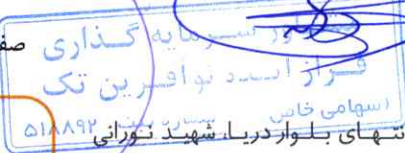 صف
مشاور سرمایه گذاری
فراز ایده نوآفرین تک
(سهامی خاص)
۵۱۸۸۹۲
نتهای بلوار دریا، شهید نورانی